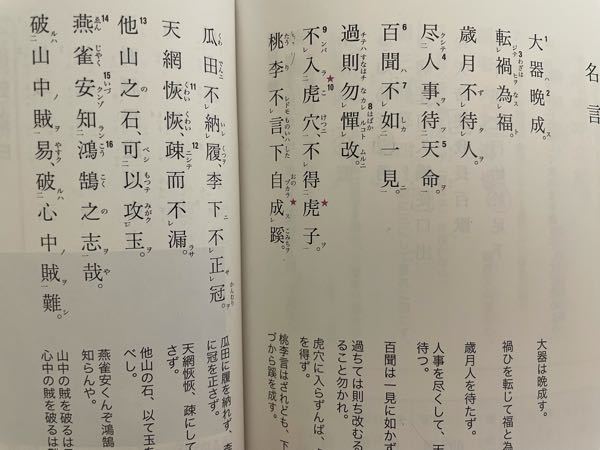 名言
大器晩成。
転禍為福。
歳月不待人。
尽人事、待天命。
百聞不如一見。
過則勿憚改。
不入虎穴、不得虎子。
桃李不言下自成蹊。
瓜田不納履、李下不正冠。
天網恢恢疎而不漏。
他山之石、可以攻玉。
燕雀安知鴻鵠之志哉。
破山中賊易、破心中賊難。
大器は晩成す。
禍ひを転じて福と為
歳月人を待たず。
人事を尽くして、天
待つ。
百聞は一見に如かず
過ちては則ち改むる
ること勿かれ。
虎穴に入らずんば、
を得ず。
桃李言はざれども、下
づから蹊を成す。
瓜田に履を納れず、李
に冠を正さず。
天網恢恢、疎にして
さず。
他山の石、以て玉を
べし。
燕雀安くんぞ鴻鵠
知らんや。
山中の賊を破るは
心中の賊を破るは難